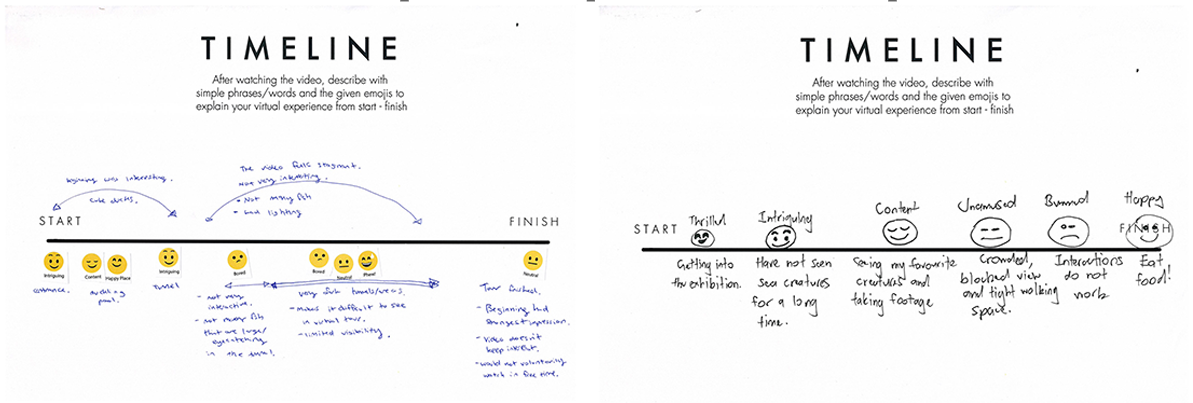 TIMELINE
After watching the video, describe with
simple phrases/words and the given emojis to
explain your virtual experience from start - finish
beginning was interesting.
cute ducks.
The video feels stagnant.
Not very interesting.
• Not many fish
- bad lighting
START
FINISH
Intriguing
Content
Happy Place
Intriguing
Bored
Bored
Neutral
Neutral
entrance.
tunnel
- not very
interactive.
- not many fish
that are large/
eyecatching
in the tunnel.
very dark tunnels/areas.
- makes it difficult to see
in virtual tour.
- limited visibility.
Tour finished.
- Beginning had
strongest impression.
- video doesn't
keep interest.
- would not voluntarily
watch in free time.
TIMELINE
After watching the video, describe with
simple phrases/words and the given emojis to
explain your virtual experience from start - finish
START
Thrilled
Intriguing
Content
Unamused
Bummed
Happy
FINISH
Getting into
the exhibition.
Have not seen
sea creatures
for a long
time.
Seeing my favourite
creatures and
taking footage
Crowded,
blocked view
and tight walking
space.
Interactions
do not
work
Eat
food!